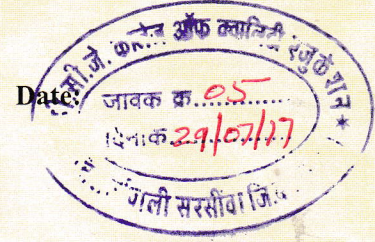 सी.जे. कॉलेज ऑफ क्वालिटी एजुकेशन *
Date:
जावक क्र. 05
दिनांक 29/07/17
गली सरसींवा जि.